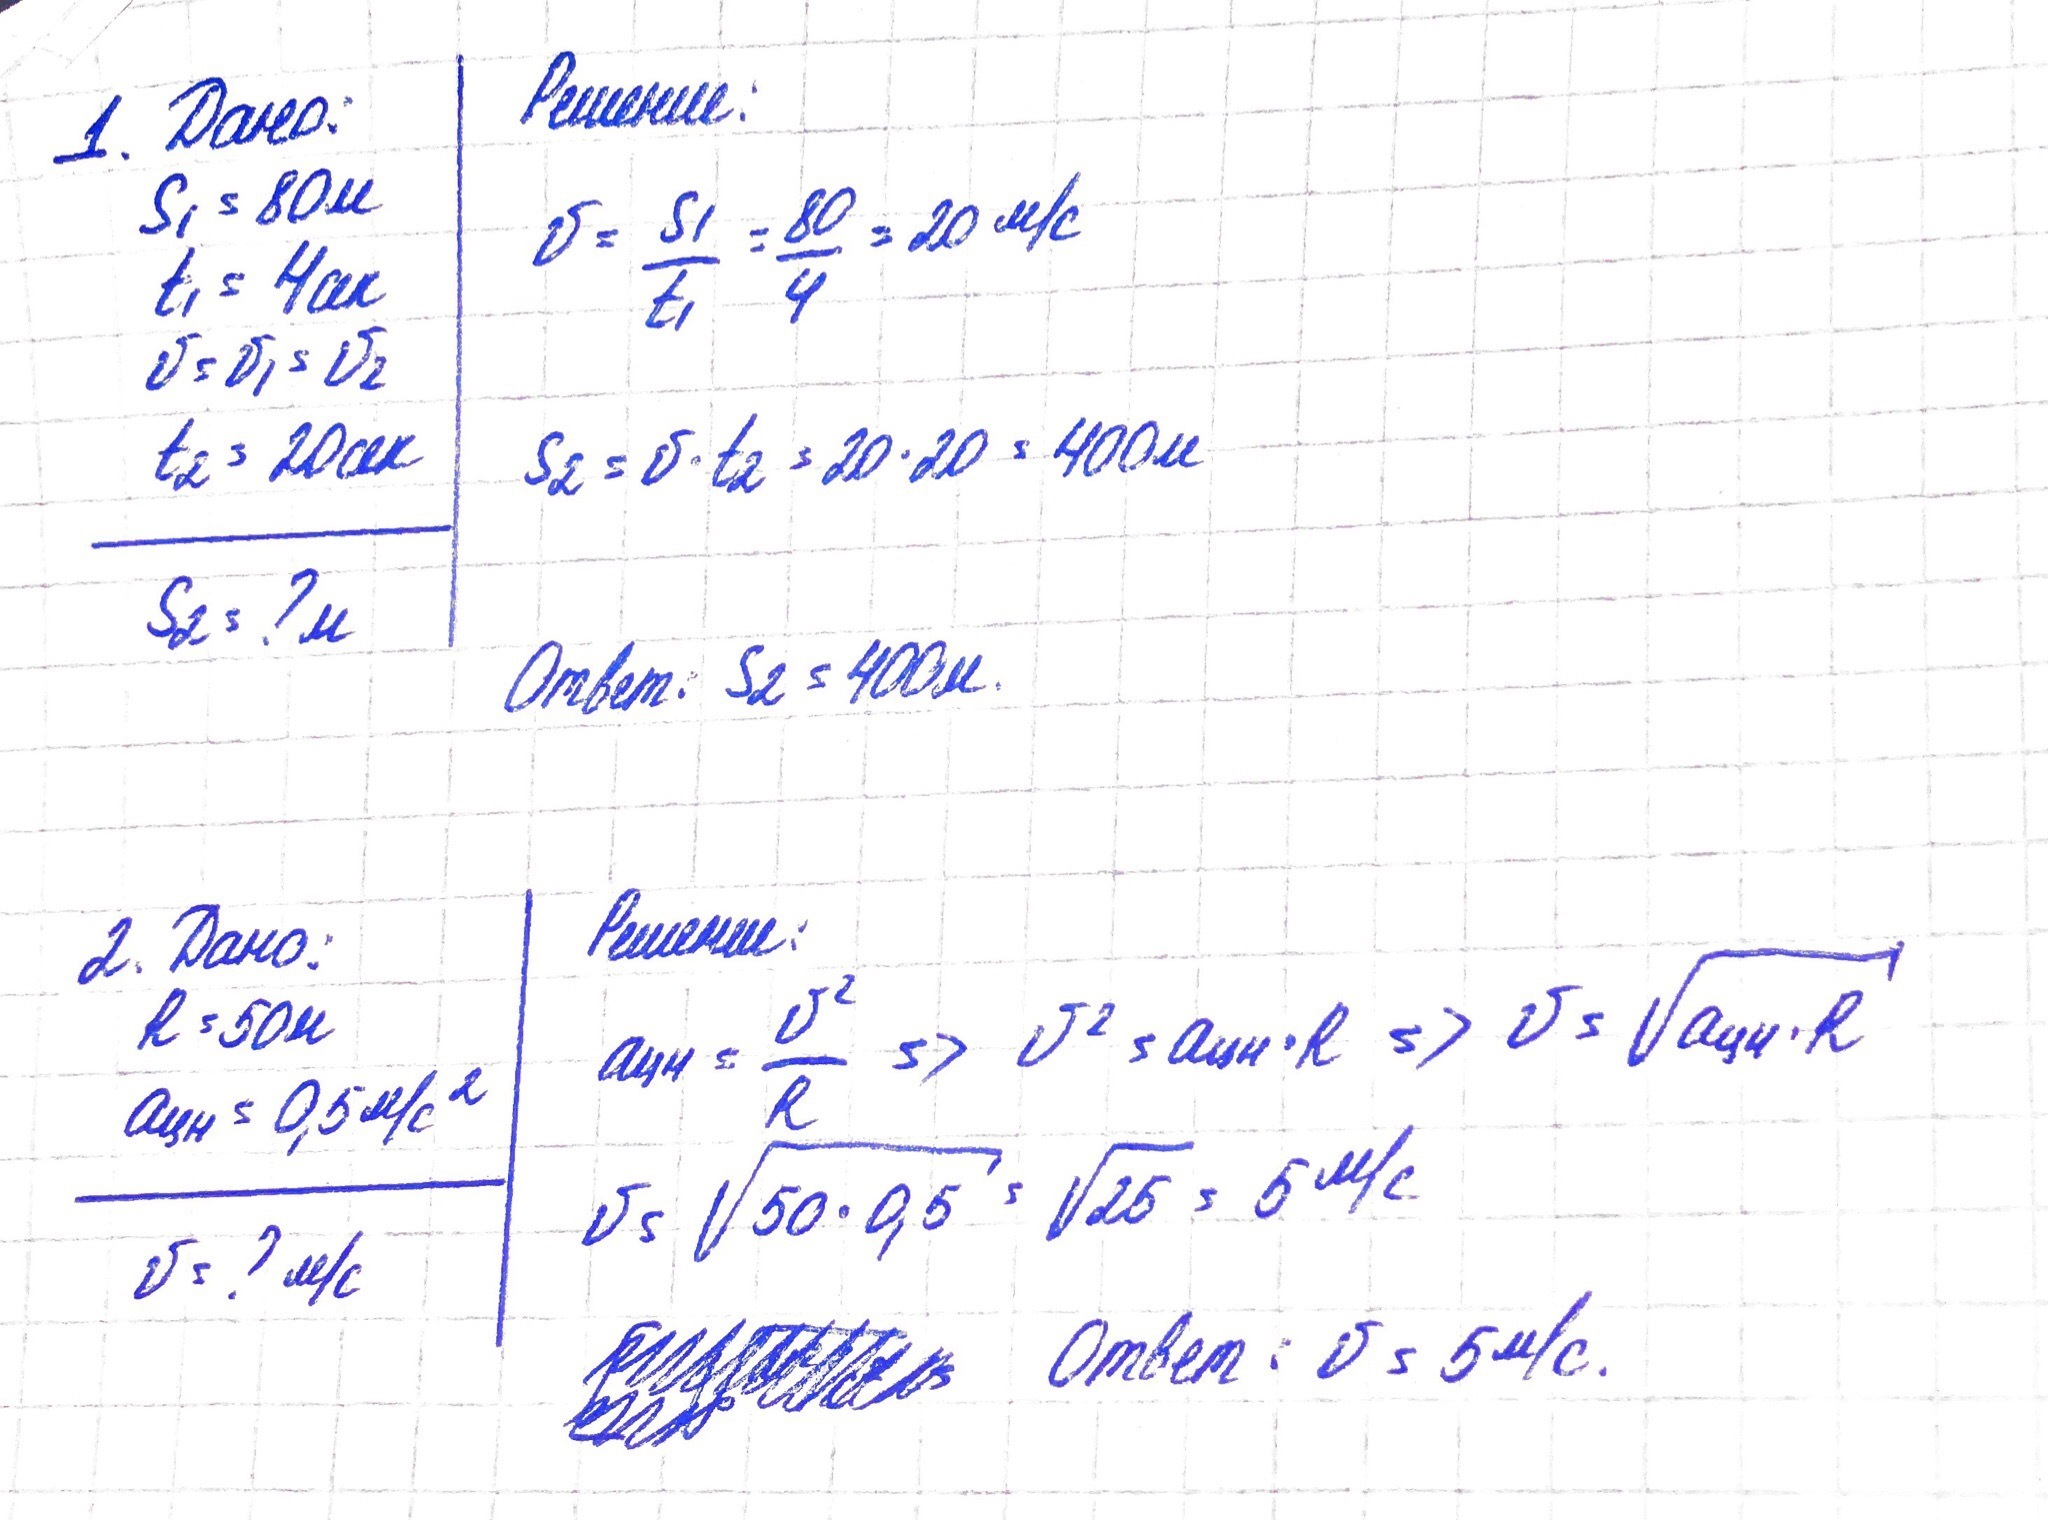 1. Дано:
S₁ = 80м
t₁ = 4сек
υ = υ₁ = υ₂
t₂ = 20сек
S₂ = ? м
Решение:
υ = S₁/t₁ = 80/4 = 20 м/с
S₂ = υ · t₂ = 20 · 20 = 400м
Ответ: S₂ = 400м.
2. Дано:
R = 50м
aцн = 0,5 м/с²
υ = ? м/с
Решение:
aцн = υ²/R => υ² = aцн · R => υ = √(aцн · R)
υ = √(50 · 0,5) = √25 = 5 м/с
Ответ: υ = 5 м/с.